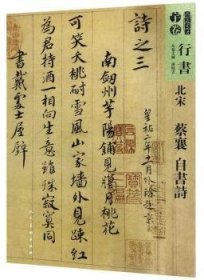 行書
北宋
蔡襄
自書詩
詩之三
皇祐二年十一月外除赴京
南劍州芋陽鋪見臘月桃花
可笑夭桃耐雪風山家墻外見疎紅
為君持酒一相向生意雖殊寂寞同
書戴處士屋壁